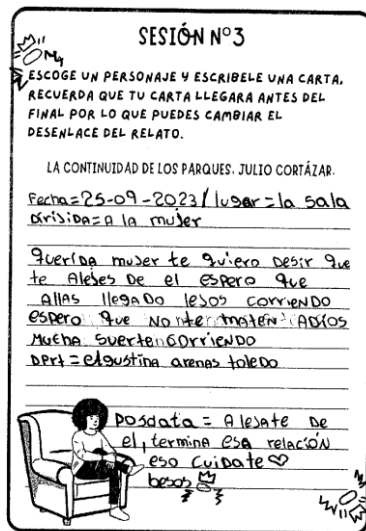 SESIÓN N°3
ESCOGE UN PERSONAJE Y ESCRIBELE UNA CARTA.
RECUERDA QUE TU CARTA LLEGARA ANTES DEL
FINAL POR LO QUE PUEDES CAMBIAR EL
DESENLACE DEL RELATO.
LA CONTINUIDAD DE LOS PARQUES. JULIO CORTÁZAR.
Fecha=25-09-2023/ lugar=la sala
DirijiDa=A la mujer
querida mujer te quiero Desir que
te Aleses De el espero que
allas llegado lejos corriendo
espero que no te maten ADIOS
Mucha suerte corriendo
arenas toledo
Posdata = Alejate De
el, termina esa relación
eso cuidate
besos